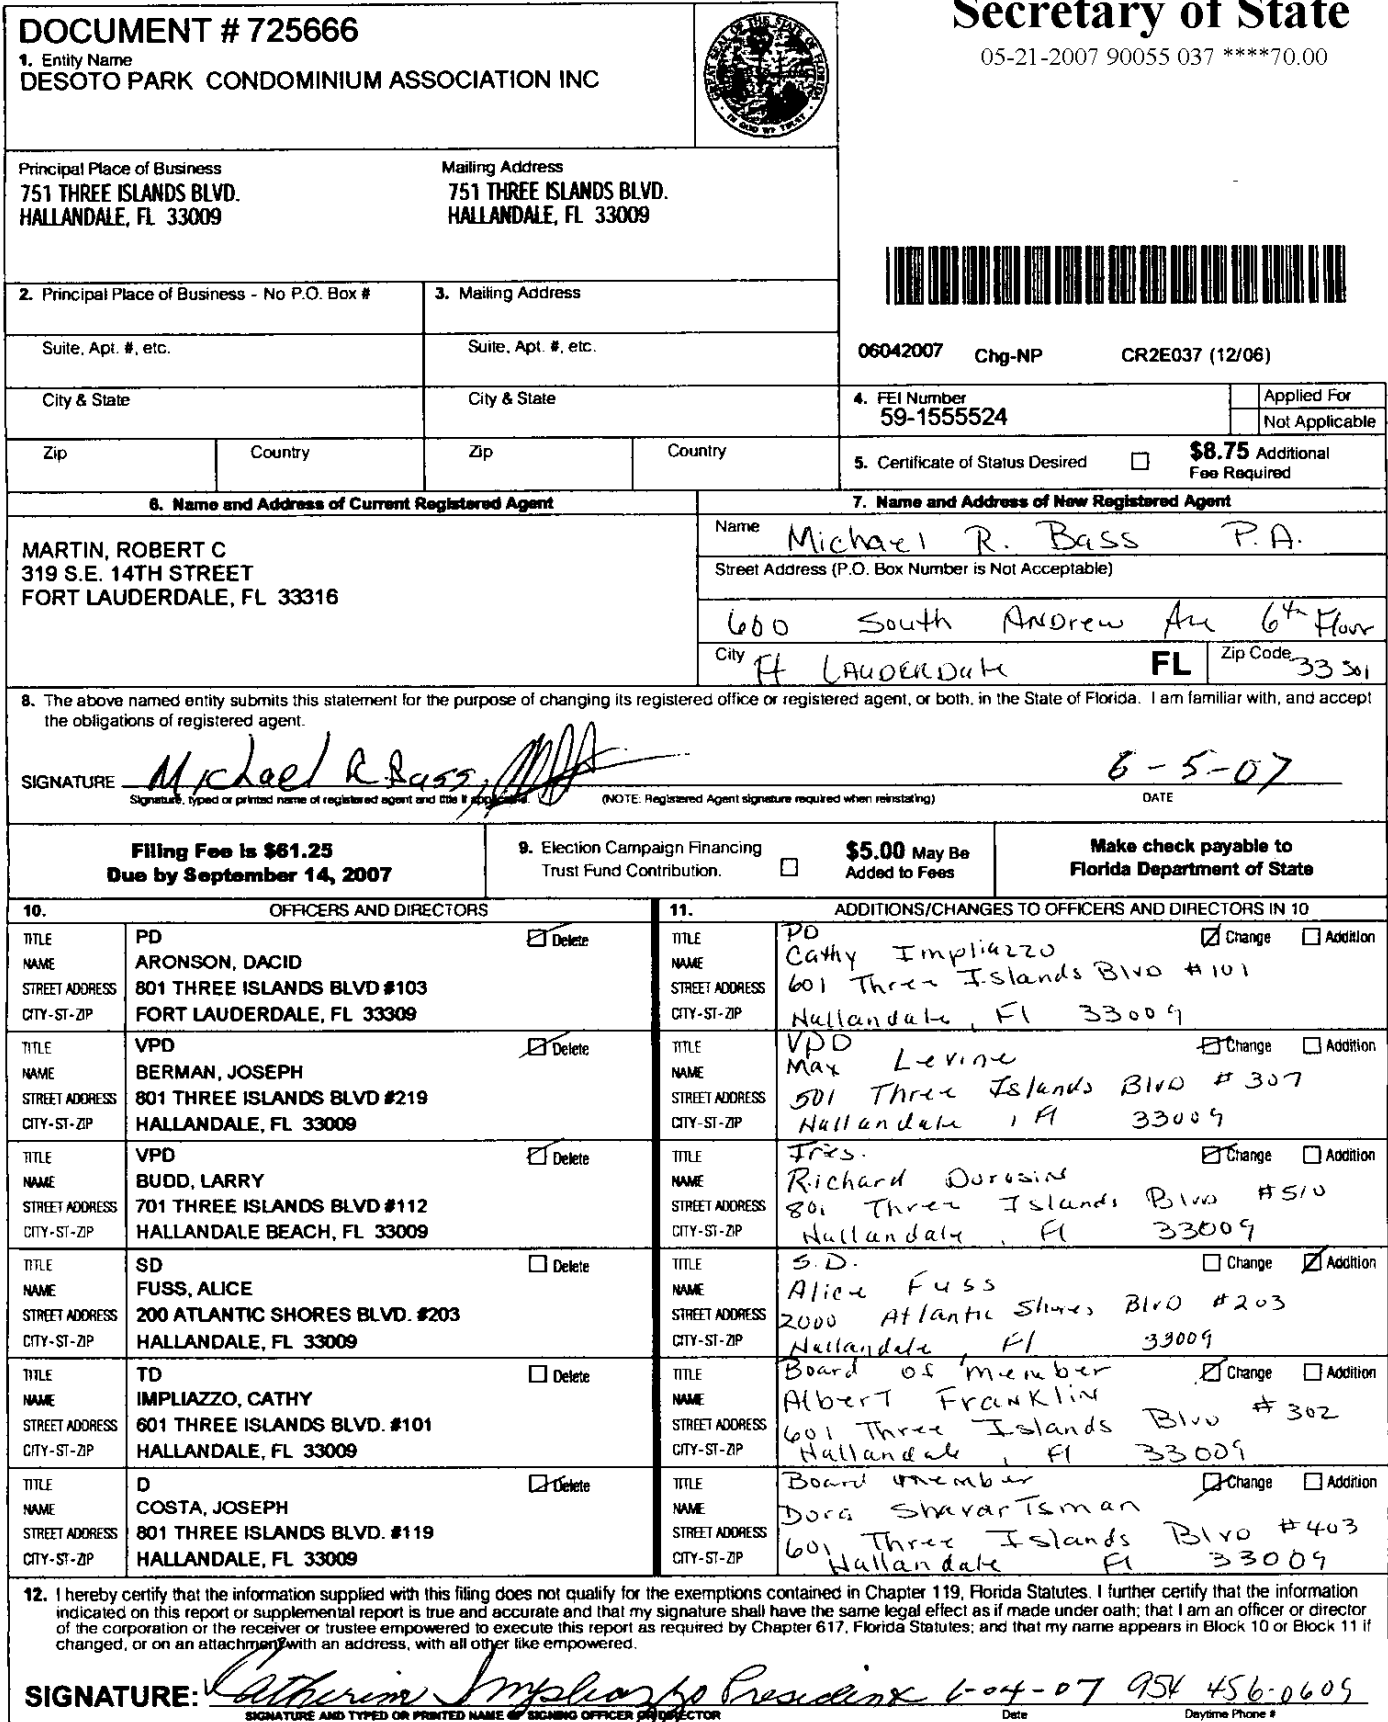 DOCUMENT # 725666
1. Entity Name
DESOTO PARK CONDOMINIUM ASSOCIATION INC
Secretary of State
05-21-2007 90055 037 ****70.00
Principal Place of Business
751 THREE ISLANDS BLVD.
HALLANDALE, FL 33009
Mailing Address
751 THREE ISLANDS BLVD.
HALLANDALE, FL 33009
2. Principal Place of Business - No P.O. Box #
3. Mailing Address
Suite, Apt. #, etc.
Suite, Apt. #, etc.
City & State
City & State
Zip
Country
Zip
Country
06042007 Chg-NP CR2E037 (12/06)
4. FEI Number
59-1555524
Applied For
Not Applicable
5. Certificate of Status Desired
$8.75 Additional
Fee Required
6. Name and Address of Current Registered Agent
MARTIN, ROBERT C
319 S.E. 14TH STREET
FORT LAUDERDALE, FL 33316
7. Name and Address of New Registered Agent
Name Michael R. Bass P.A.
Street Address (P.O. Box Number is Not Acceptable)
600 South Andrew Ave 6th Floor
City Ft LAUDERDALE FL Zip Code 33301
8. The above named entity submits this statement for the purpose of changing its registered office or registered agent, or both, in the State of Florida. I am familiar with, and accept
the obligations of registered agent.
SIGNATURE Michael R Bass, 6-5-07
Signature, typed or printed name of registered agent and title if applicable. (NOTE: Registered Agent signature required when reinstating) DATE
Filing Fee is $61.25
Due by September 14, 2007
9. Election Campaign Financing
Trust Fund Contribution.
$5.00 May Be
Added to Fees
Make check payable to
Florida Department of State
10. OFFICERS AND DIRECTORS
TITLE PD Delete
NAME ARONSON, DACID
STREET ADDRESS 801 THREE ISLANDS BLVD #103
CITY-ST-ZIP FORT LAUDERDALE, FL 33309
TITLE VPD Delete
NAME BERMAN, JOSEPH
STREET ADDRESS 801 THREE ISLANDS BLVD #219
CITY-ST-ZIP HALLANDALE, FL 33009
TITLE VPD Delete
NAME BUDD, LARRY
STREET ADDRESS 701 THREE ISLANDS BLVD #112
CITY-ST-ZIP HALLANDALE BEACH, FL 33009
TITLE SD Delete
NAME FUSS, ALICE
STREET ADDRESS 200 ATLANTIC SHORES BLVD. #203
CITY-ST-ZIP HALLANDALE, FL 33009
TITLE TD Delete
NAME IMPLIAZZO, CATHY
STREET ADDRESS 601 THREE ISLANDS BLVD. #101
CITY-ST-ZIP HALLANDALE, FL 33009
TITLE D Delete
NAME COSTA, JOSEPH
STREET ADDRESS 801 THREE ISLANDS BLVD. #119
CITY-ST-ZIP HALLANDALE, FL 33009
11. ADDITIONS/CHANGES TO OFFICERS AND DIRECTORS IN 10
TITLE PD Change Addition
NAME Cathy Impliazzo
STREET ADDRESS 601 Three Islands Blvd #101
CITY-ST-ZIP Hallandale, Fl 33009
TITLE VPD Change Addition
NAME Max Levine
STREET ADDRESS 501 Three Islands Blvd # 307
CITY-ST-ZIP Hallandale, Fl 33009
TITLE Tres. Change Addition
NAME Richard
STREET ADDRESS 801 Three Islands Blvd #510
CITY-ST-ZIP Hallandale, Fl 33009
TITLE S.D. Change Addition
NAME Alice Fuss
STREET ADDRESS 2000 Atlantic Shores Blvd #203
CITY-ST-ZIP Hallandale, Fl 33009
TITLE Board of member Change Addition
NAME Albert Franklin
STREET ADDRESS 601 Three Islands Blvd # 302
CITY-ST-ZIP Hallandale, Fl 33009
TITLE Board member Change Addition
NAME Dora Shavartsman
STREET ADDRESS 601 Three Islands Blvd #403
CITY-ST-ZIP Hallandale Fl 33009
12. I hereby certify that the information supplied with this filing does not qualify for the exemptions contained in Chapter 119, Florida Statutes. I further certify that the information
indicated on this report or supplemental report is true and accurate and that my signature shall have the same legal effect as if made under oath; that I am an officer or director
of the corporation or the receiver or trustee empowered to execute this report as required by Chapter 617, Florida Statutes; and that my name appears in Block 10 or Block 11 if
changed, or on an attachment with an address, with all other like empowered.
SIGNATURE: Catherine Impliazzo President 6-04-07 954 456-0609
SIGNATURE AND TYPED OR PRINTED NAME OF SIGNING OFFICER OR DIRECTOR Date Daytime Phone #